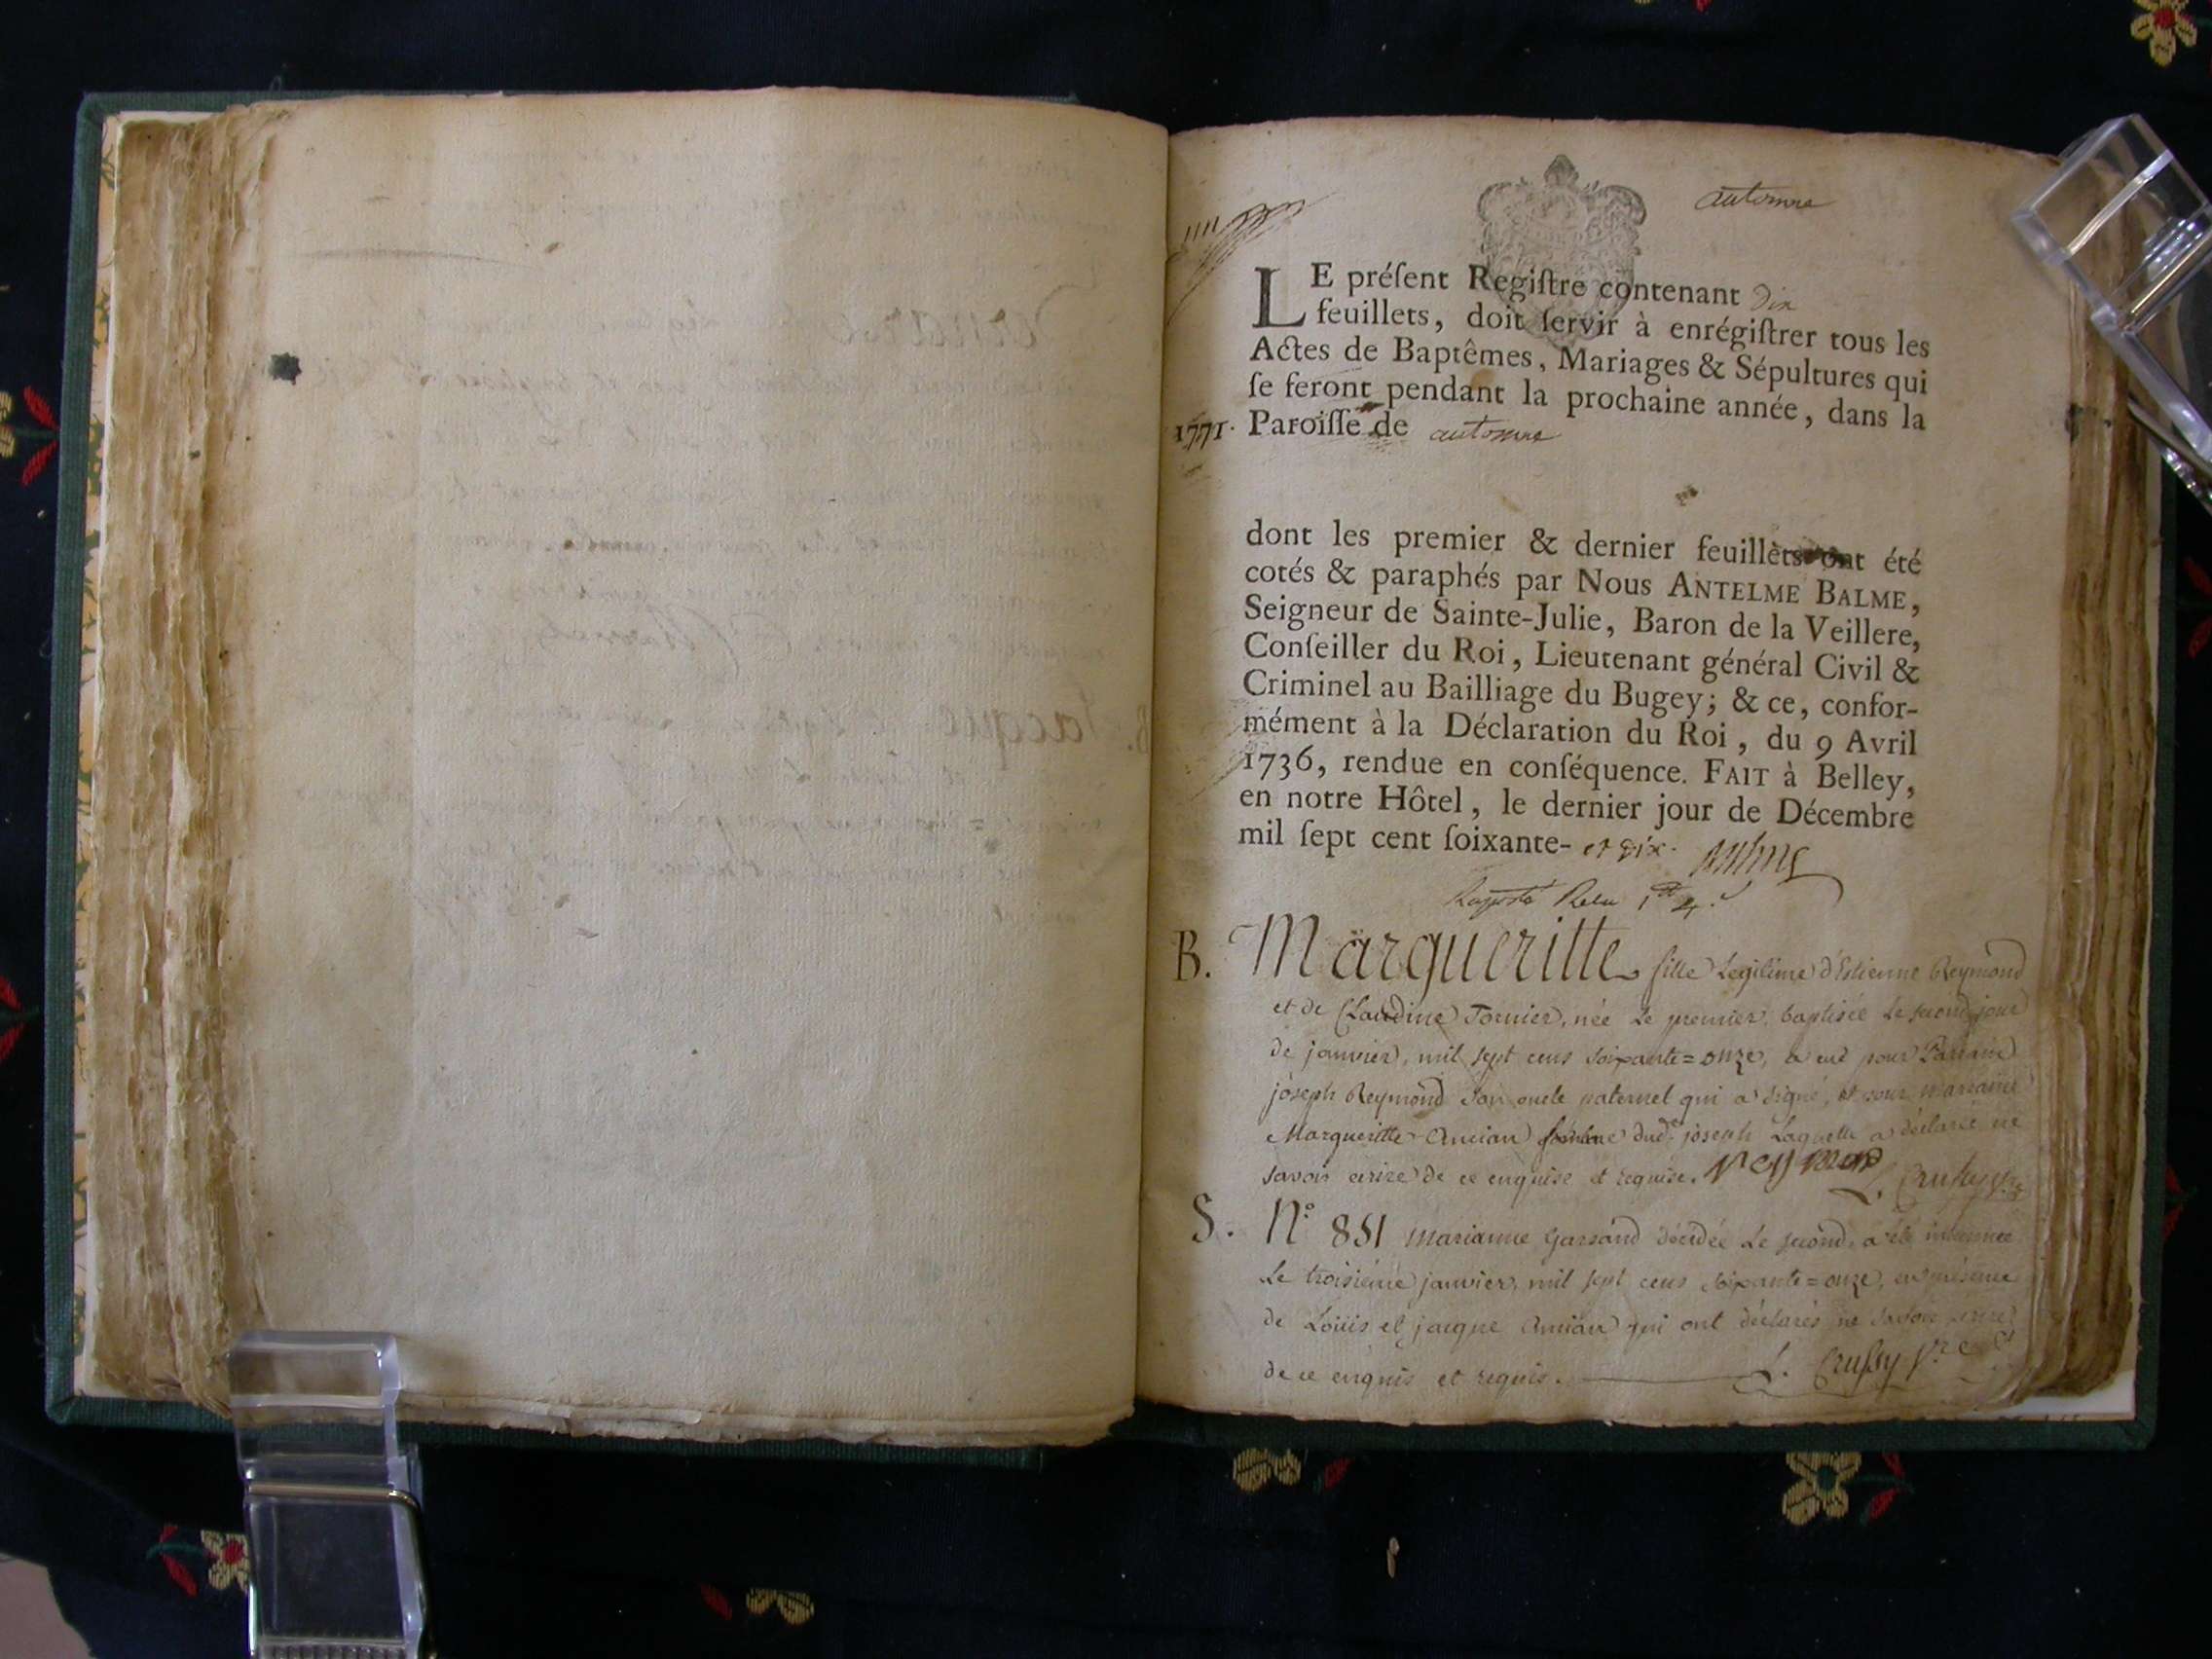 automne
LE préſent Regiſtre contenant Dix
feuillets, doit ſervir à enrégiſtrer tous les
Actes de Baptêmes, Mariages & Sépultures qui
ſe feront pendant la prochaine année, dans la
1771. Paroiſſe de automne
dont les premier & dernier feuillets ont été
cotés & paraphés par Nous ANTELME BALME,
Seigneur de Sainte-Julie, Baron de la Veillere,
Conſeiller du Roi, Lieutenant général Civil &
Criminel au Bailliage du Bugey; & ce, confor-
mément à la Déclaration du Roi, du 9 Avril
1736, rendue en conſéquence. FAIT à Belley,
en notre Hôtel, le dernier jour de Décembre
mil ſept cent ſoixante- et dix.
B. Margueritte fille Legitime d'Estienne Reymond
et de Claudine Fornier, née Le premier, baptisée Le second jour
de janvier, mil sept cens soixante=onze, a eut pour Parrain
joseph Reymond son oncle paternel qui a signé, et pour marraine
Margueritte Amian femme dud. joseph Laquelle a déclaré ne
savoir ecrire de ce enquise et requise. reymond L. Crussy
S. N.° 851 Marianne Garsand décédée Le second, a été inhumée
Le troisième janvier, mil sept cens soixante=onze, en présence
de Loüis et jacque Amian qui ont déclarés ne savoir ecrire
de ce enquis et requis. L. Crussy